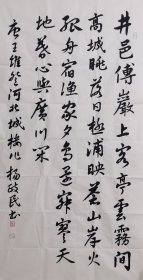 井邑傅巖上客亭雲霧間
高城眺落日極浦映蒼山岸火
孤舟宿漁家夕鳥還寂寥天
地暮心與廣川閑
唐王維登河北城樓作 楊政民书